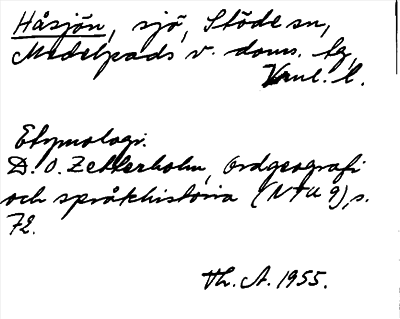 Håsjön, sjö, Stöde sn,
Medelpads v. doms. tg,
Vnul. l.
Etymologi.
D. O. Zetterholm, Ordgeografi
och språkhistoria (NTU 9), s.
72.
Th. A. 1955.